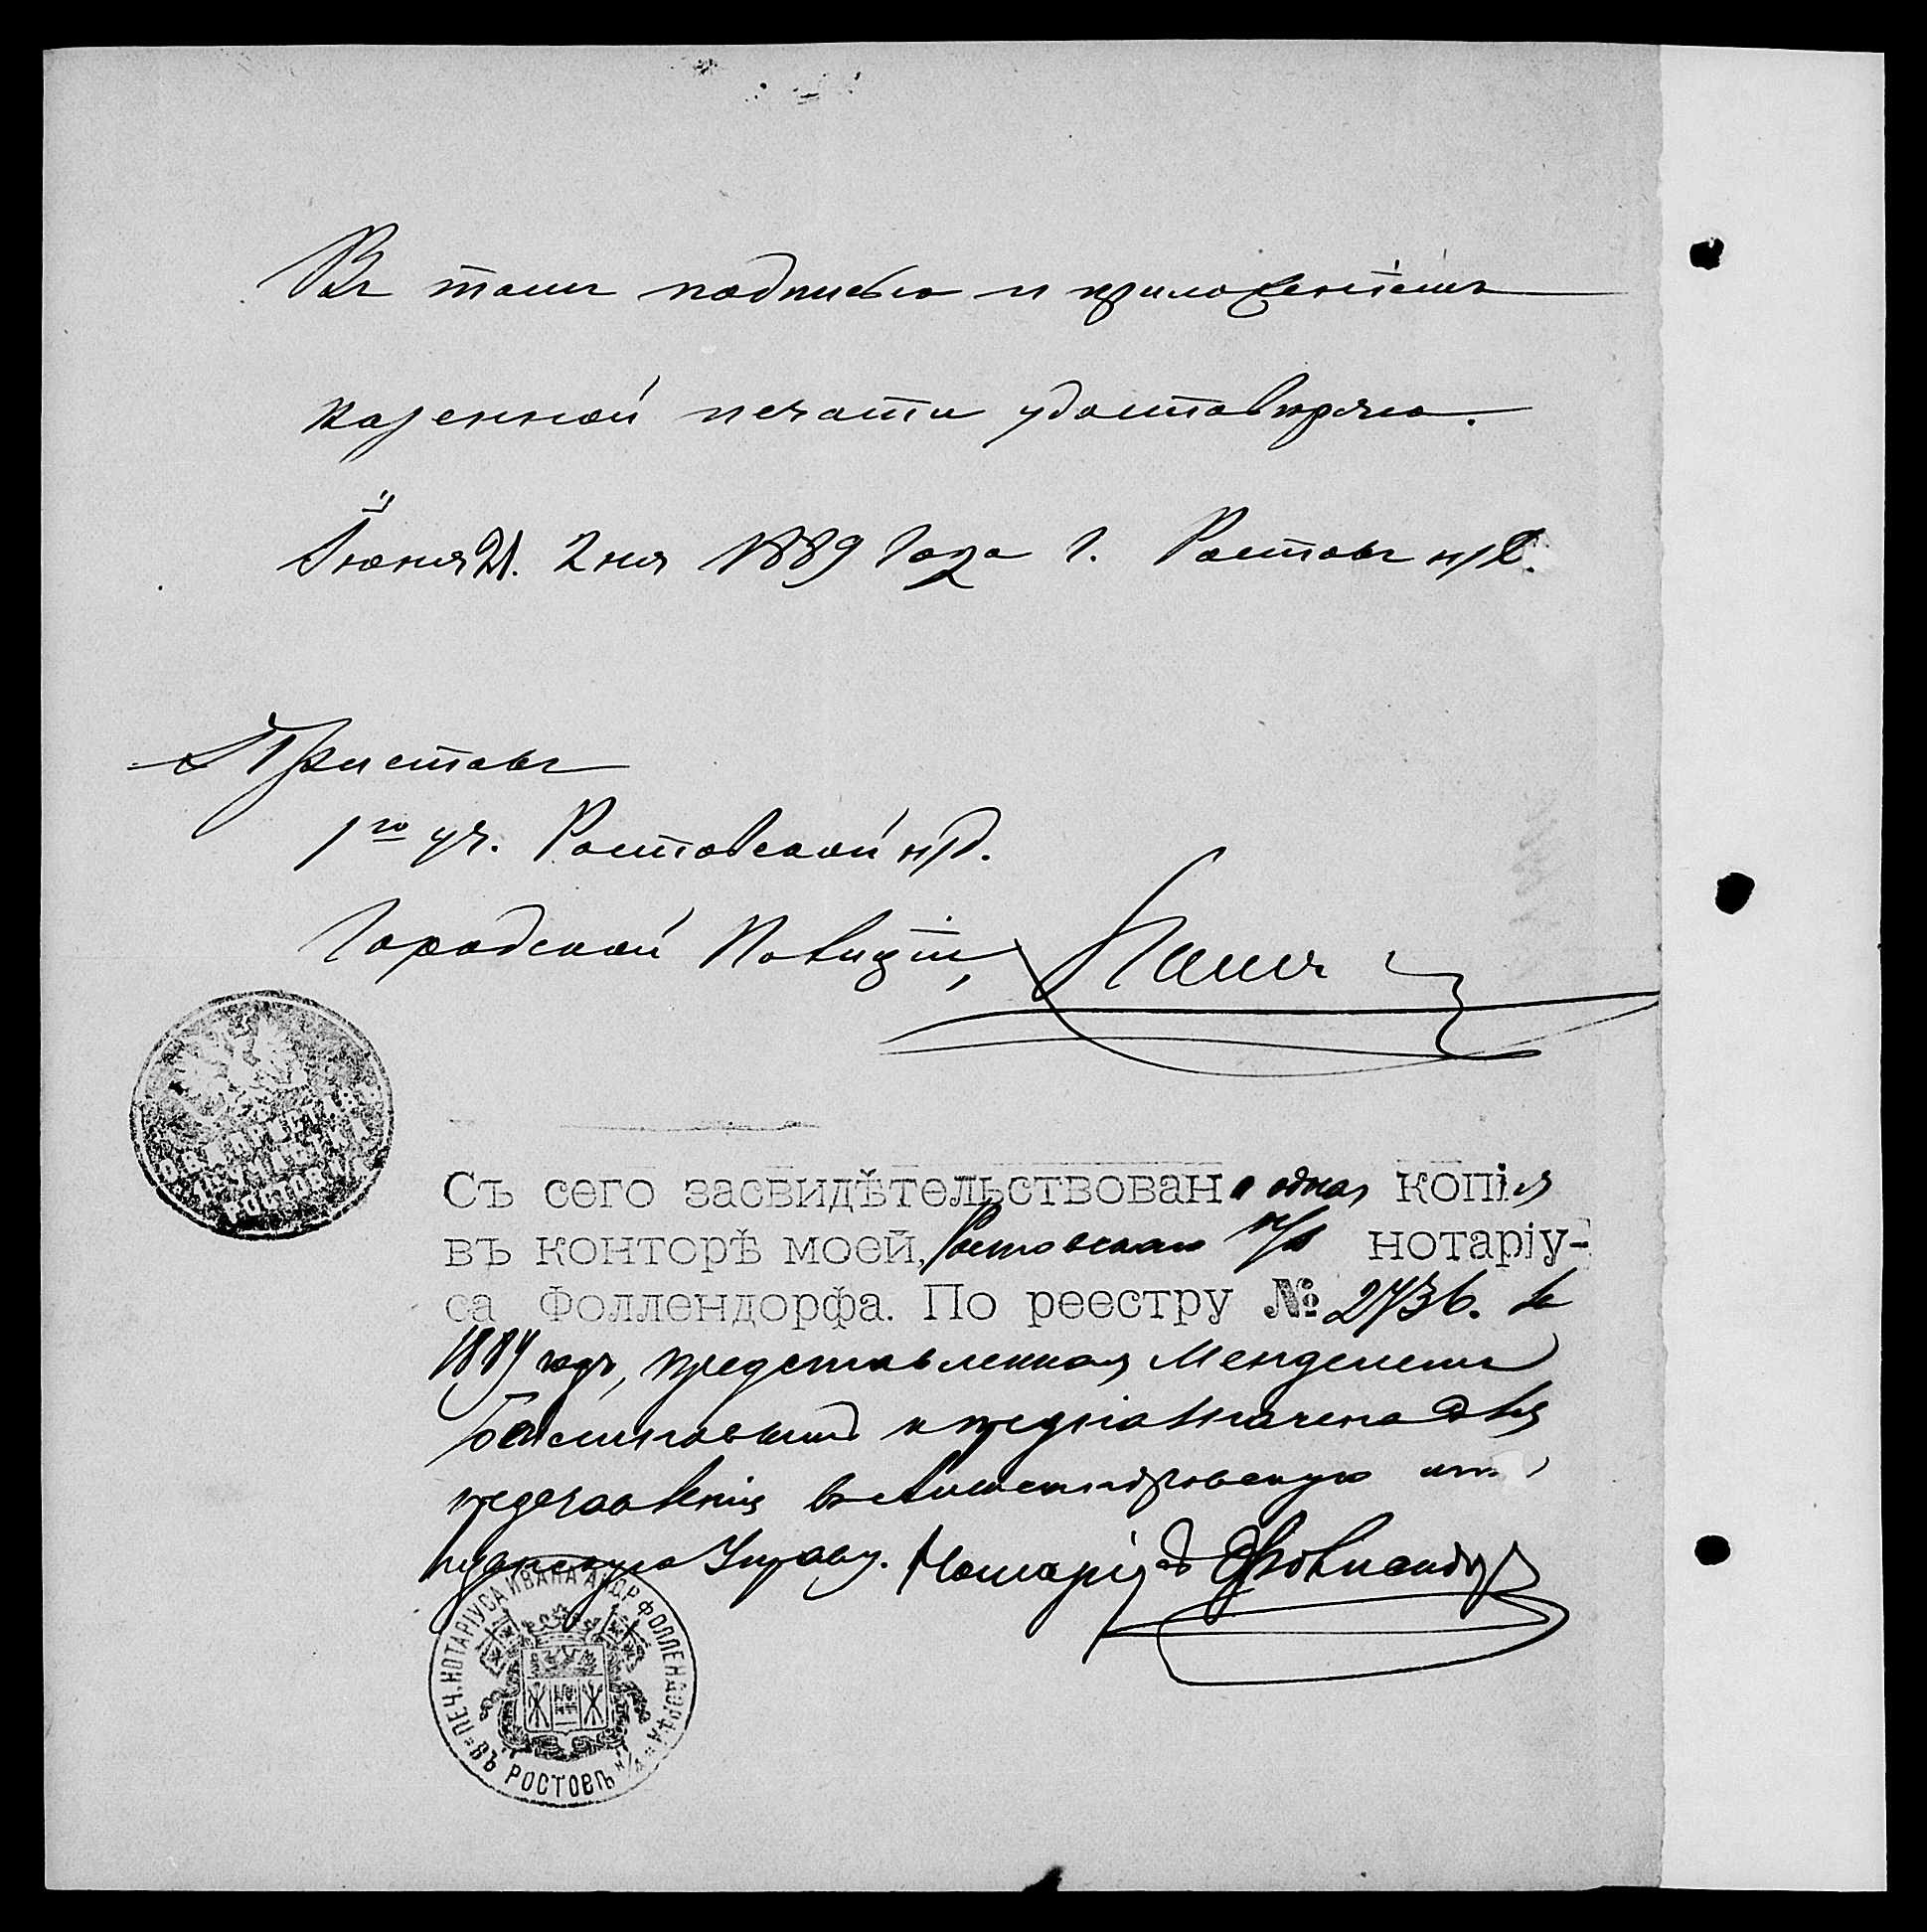 Въ томъ подписью и приложеніемъ
казенной печати удостовѣряю.
Іюня 21. дня 1889 года г. Ростовъ н/Д.
Приставъ
1го уч. Ростовской н/Д.
Городской Полиціи,
О.В.Д. ПРИСТАВЪ
1го УЧАСТКА
РОСТОВ. Н/Д
Съ сего засвидѣтельствована одна копія
въ конторѣ моей, Ростовскаго н/Д нотаріу-
са Фоллендорфа. По реестру № 2736. въ
1889 году, представленная Менделемъ
и предназначена для
представленія въ Александровскую
Управу. Нотаріусъ Фоллендорфъ
ПЕЧ. НОТАРІУСА ИВАНА АНДР. ФОЛЛЕНДОРФА
ВЪ РОСТОВѢ Н/Д